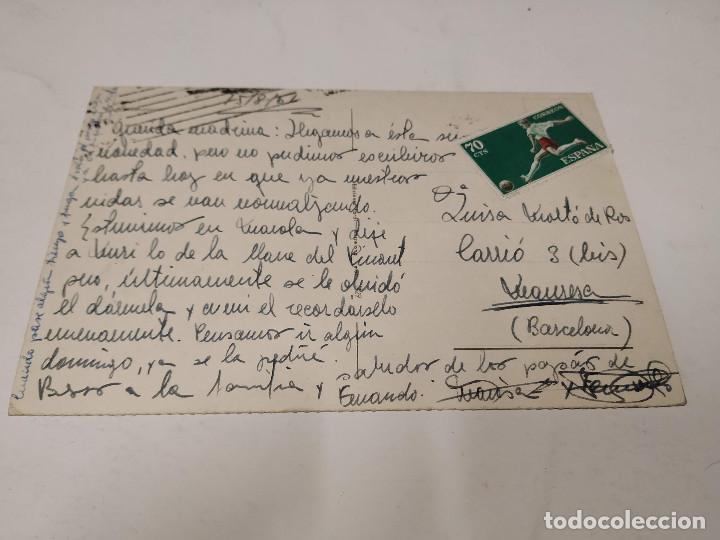 25/8/62
Querida madrina: Llegamos a ésta sin
novedad, pero no pudimos escribiros
hasta hoy en que ya nuestras
vidas se van normalizando.
Estuvimos en y dije
a lo de la llave del
pero, últimamente se le olvidó
el dármela y a mi el recordárselo
Pensamos ir algún
domingo, ya se la pediré.
Besos a la familia y saludos de los papás de
Fernando.
70
CTS
CORREOS
ESPAÑA
Dª
Luisa Moltó de Ros
Carrió 3 (bis)
Manresa
(Barcelona)
Cuando pase algún tiempo y tenga
todocoleccion
todocoleccion.net